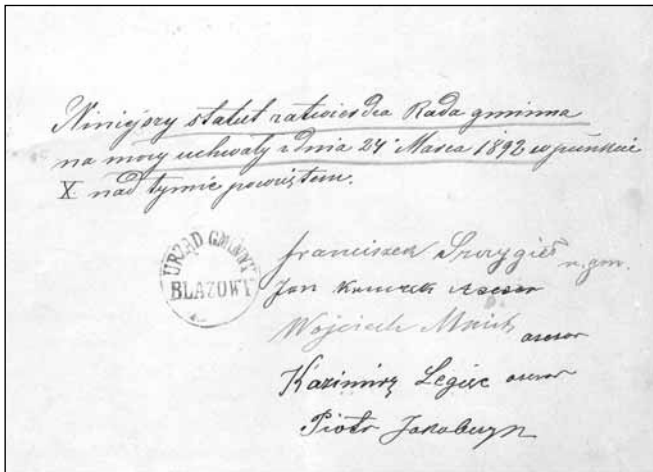 Niniejszy statut zatwierdza Rada gminna
na mocy uchwały z dnia 24 Marca 1892 w punkcie
X nad tymże powziętem.
URZĄD GMINNY
BŁAZOWY
Franciszek Szczygieł n. gm.
Jan Asesor
Wojciech Mnich asesor
Kazimirz Legięc asesor
Piotr Jakubczyk